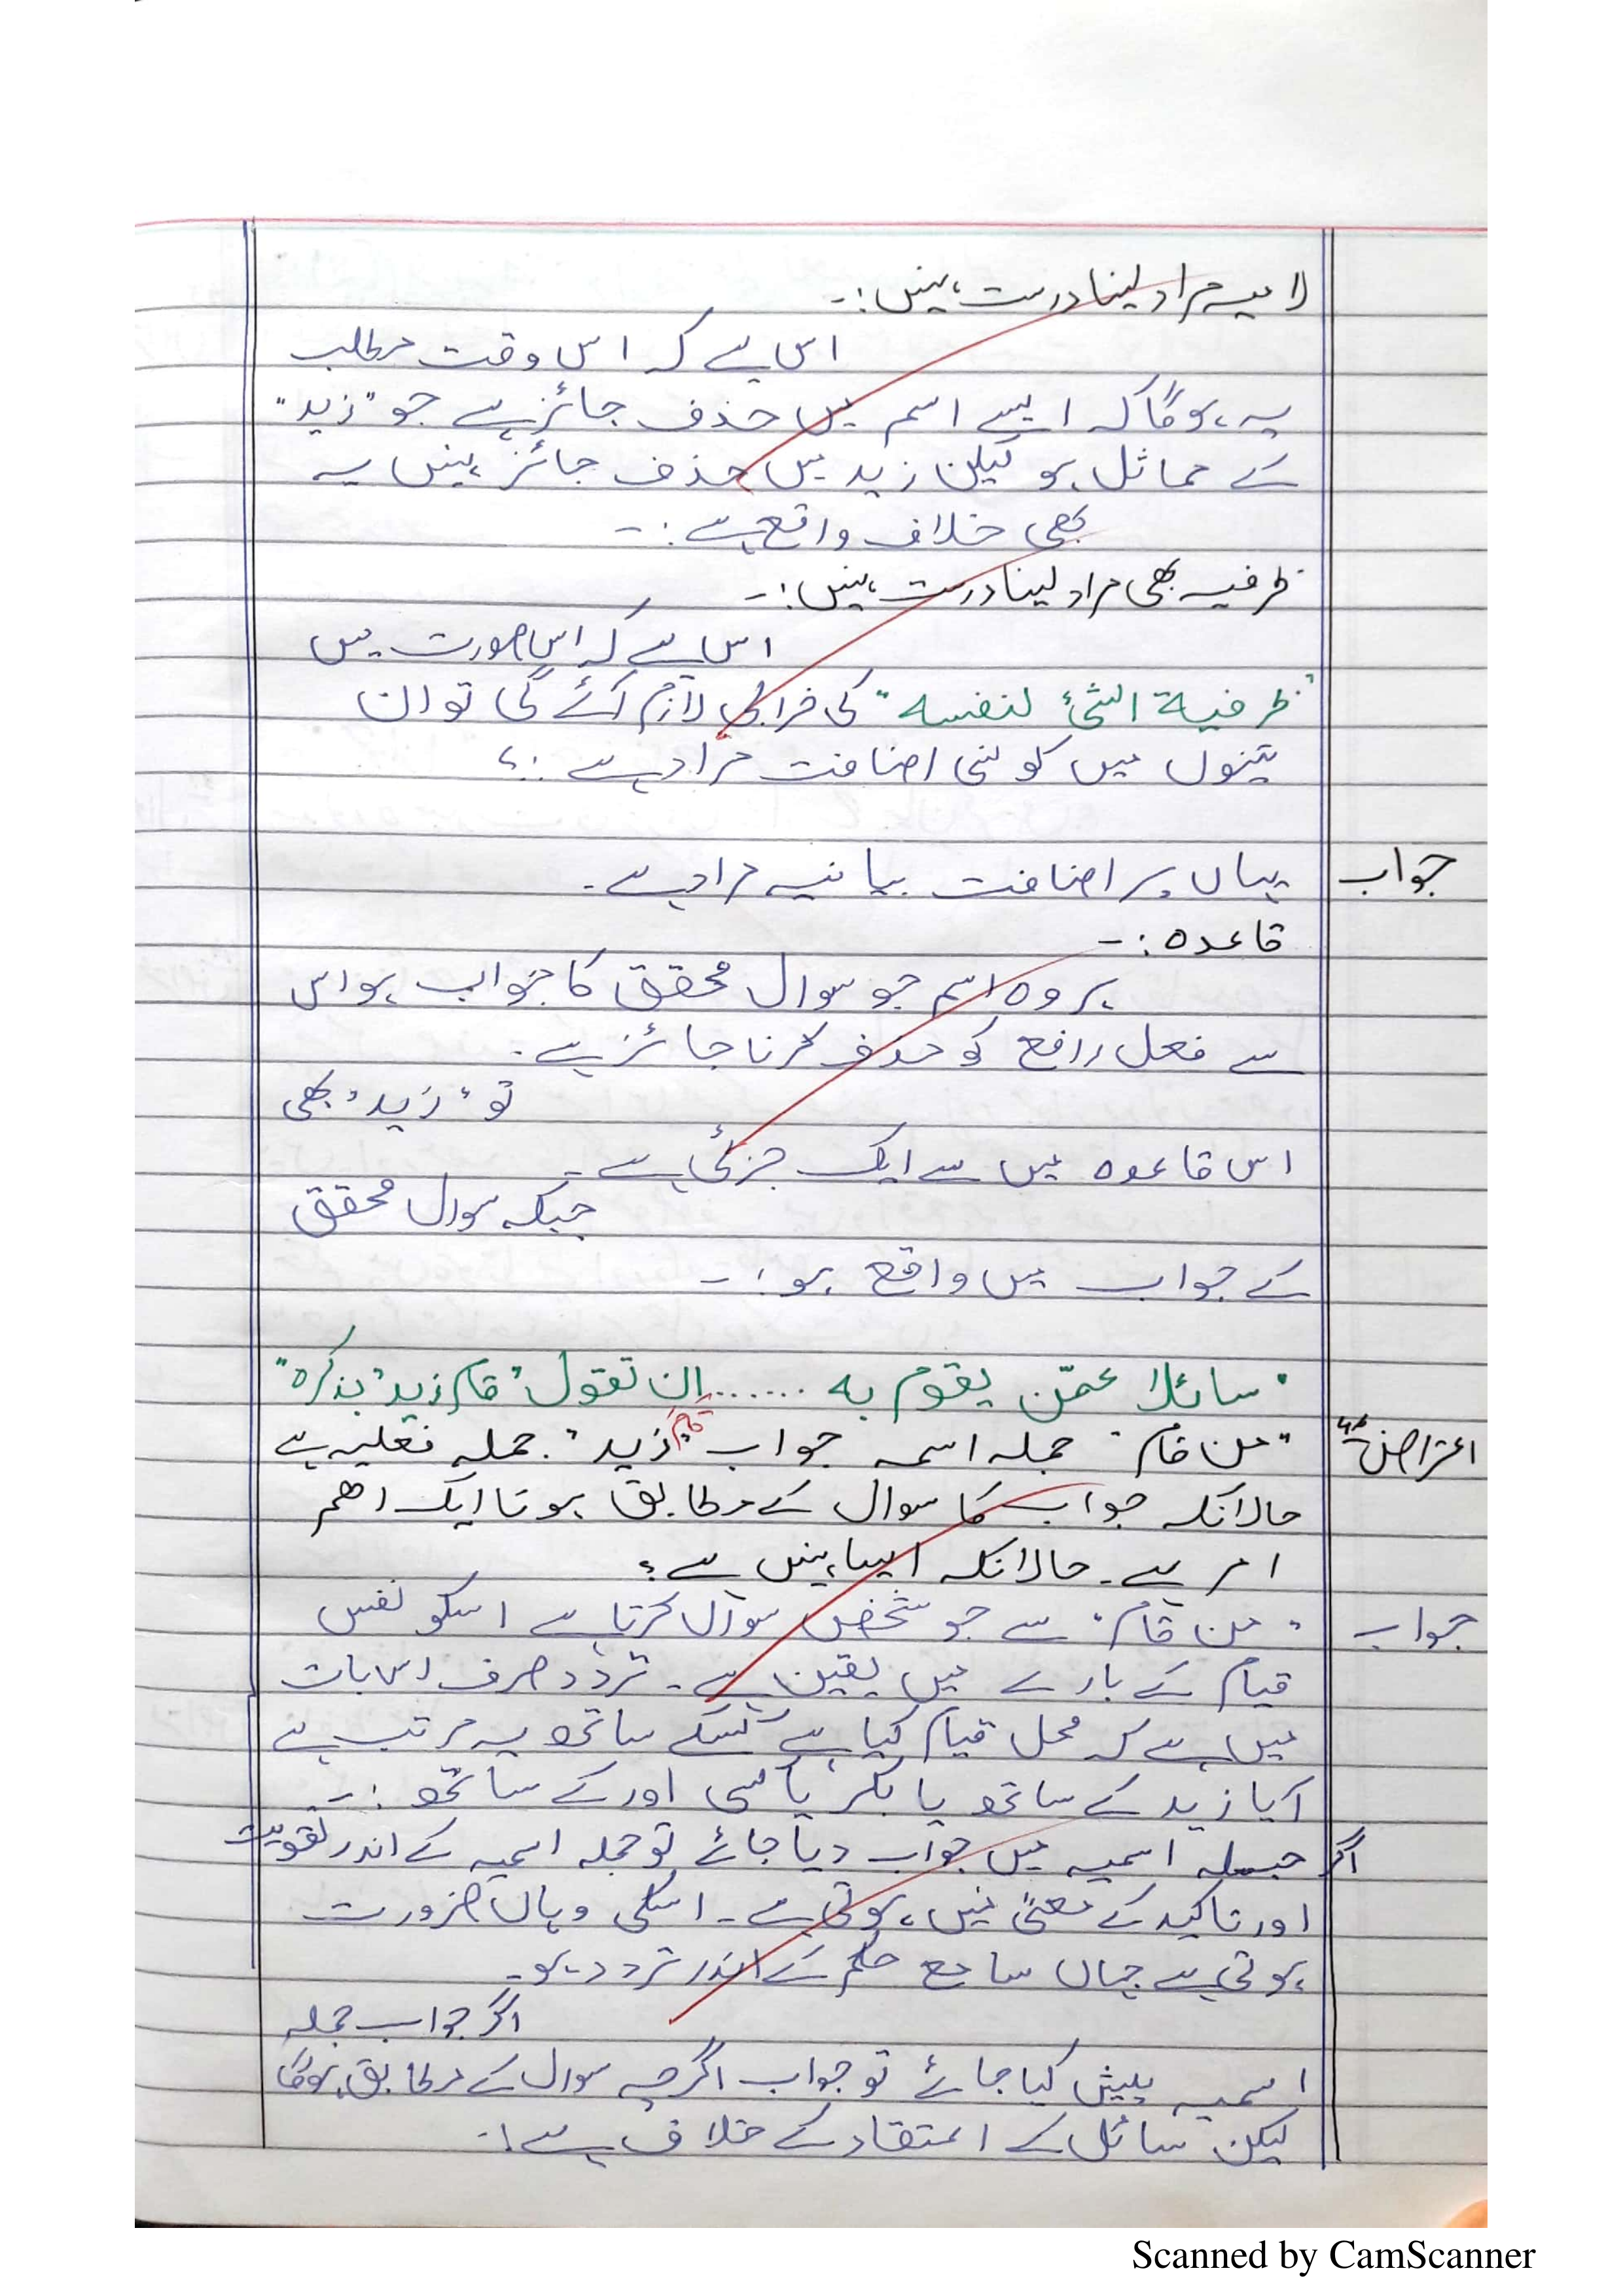 لامیہ مراد لینا درست نہیں:۔
اس لیے کہ اس وقت مطلب
یہ ہوگا کہ ایسے اسم میں حذف جائز ہے جو "زید"
کے مماثل ہو لیکن زید میں حذف جائز نہیں یہ
بھی خلاف واقع ہے:۔
ظرفیہ بھی مراد لینا درست نہیں:۔
اس لیے کہ اس صورت میں
"ظرفیة الشئ لنفسه" کی خرابی لازم آئے گی تو ان
تینوں میں کونسی اضافت مراد ہے:؟
جواب یہاں پر اضافت بیانیہ مراد ہے۔
قاعدہ:۔
ہر وہ اسم جو سوال محقق کا جواب ہو اس
سے فعل رافع کو حذف کرنا جائز ہے۔
تو "زید" بھی
اس قاعدہ میں سے ایک جزئی ہے۔
جبکہ سوال محقق
کے جواب میں واقع ہو:۔
"سائلا عمّن یقوم به ....... ان تقول "قام زید" بذکرہ"
اعتراض "من قام" جملہ اسمہ جواب "قام زید" جملہ فعلیہ ہے
حالانکہ جواب کا سوال کے مطابق ہونا ایک اھم
امر ہے۔ حالانکہ ایسا نہیں ہے؟
جواب "من قام" سے جو شخص سوال کرتا ہے اسکو نفس
قیام کے بارے میں یقین ہے۔ تردد صرف اس بات
میں ہے کہ محل قیام کیا ہے کسکے ساتھ یہ مرتب ہے
آیا زید کے ساتھ یا بکر یا کسی اور کے ساتھ:۔
اگر جملہ اسمیہ میں جواب دیا جائے تو جملہ اسمیہ کے اندر تقویت
اور تاکید کے معنیٰ میں ہوتی ہے۔ اسکی وہاں ضرورت
ہوتی ہے جہاں سامع حکم کے اندر تردد ہو۔
اگر جواب جملہ
اسمیہ پیش کیا جائے تو جواب اگرچہ سوال کے مطابق ہوگا
لیکن سائل کے اعتقاد کے خلاف ہے:۔
Scanned by CamScanner